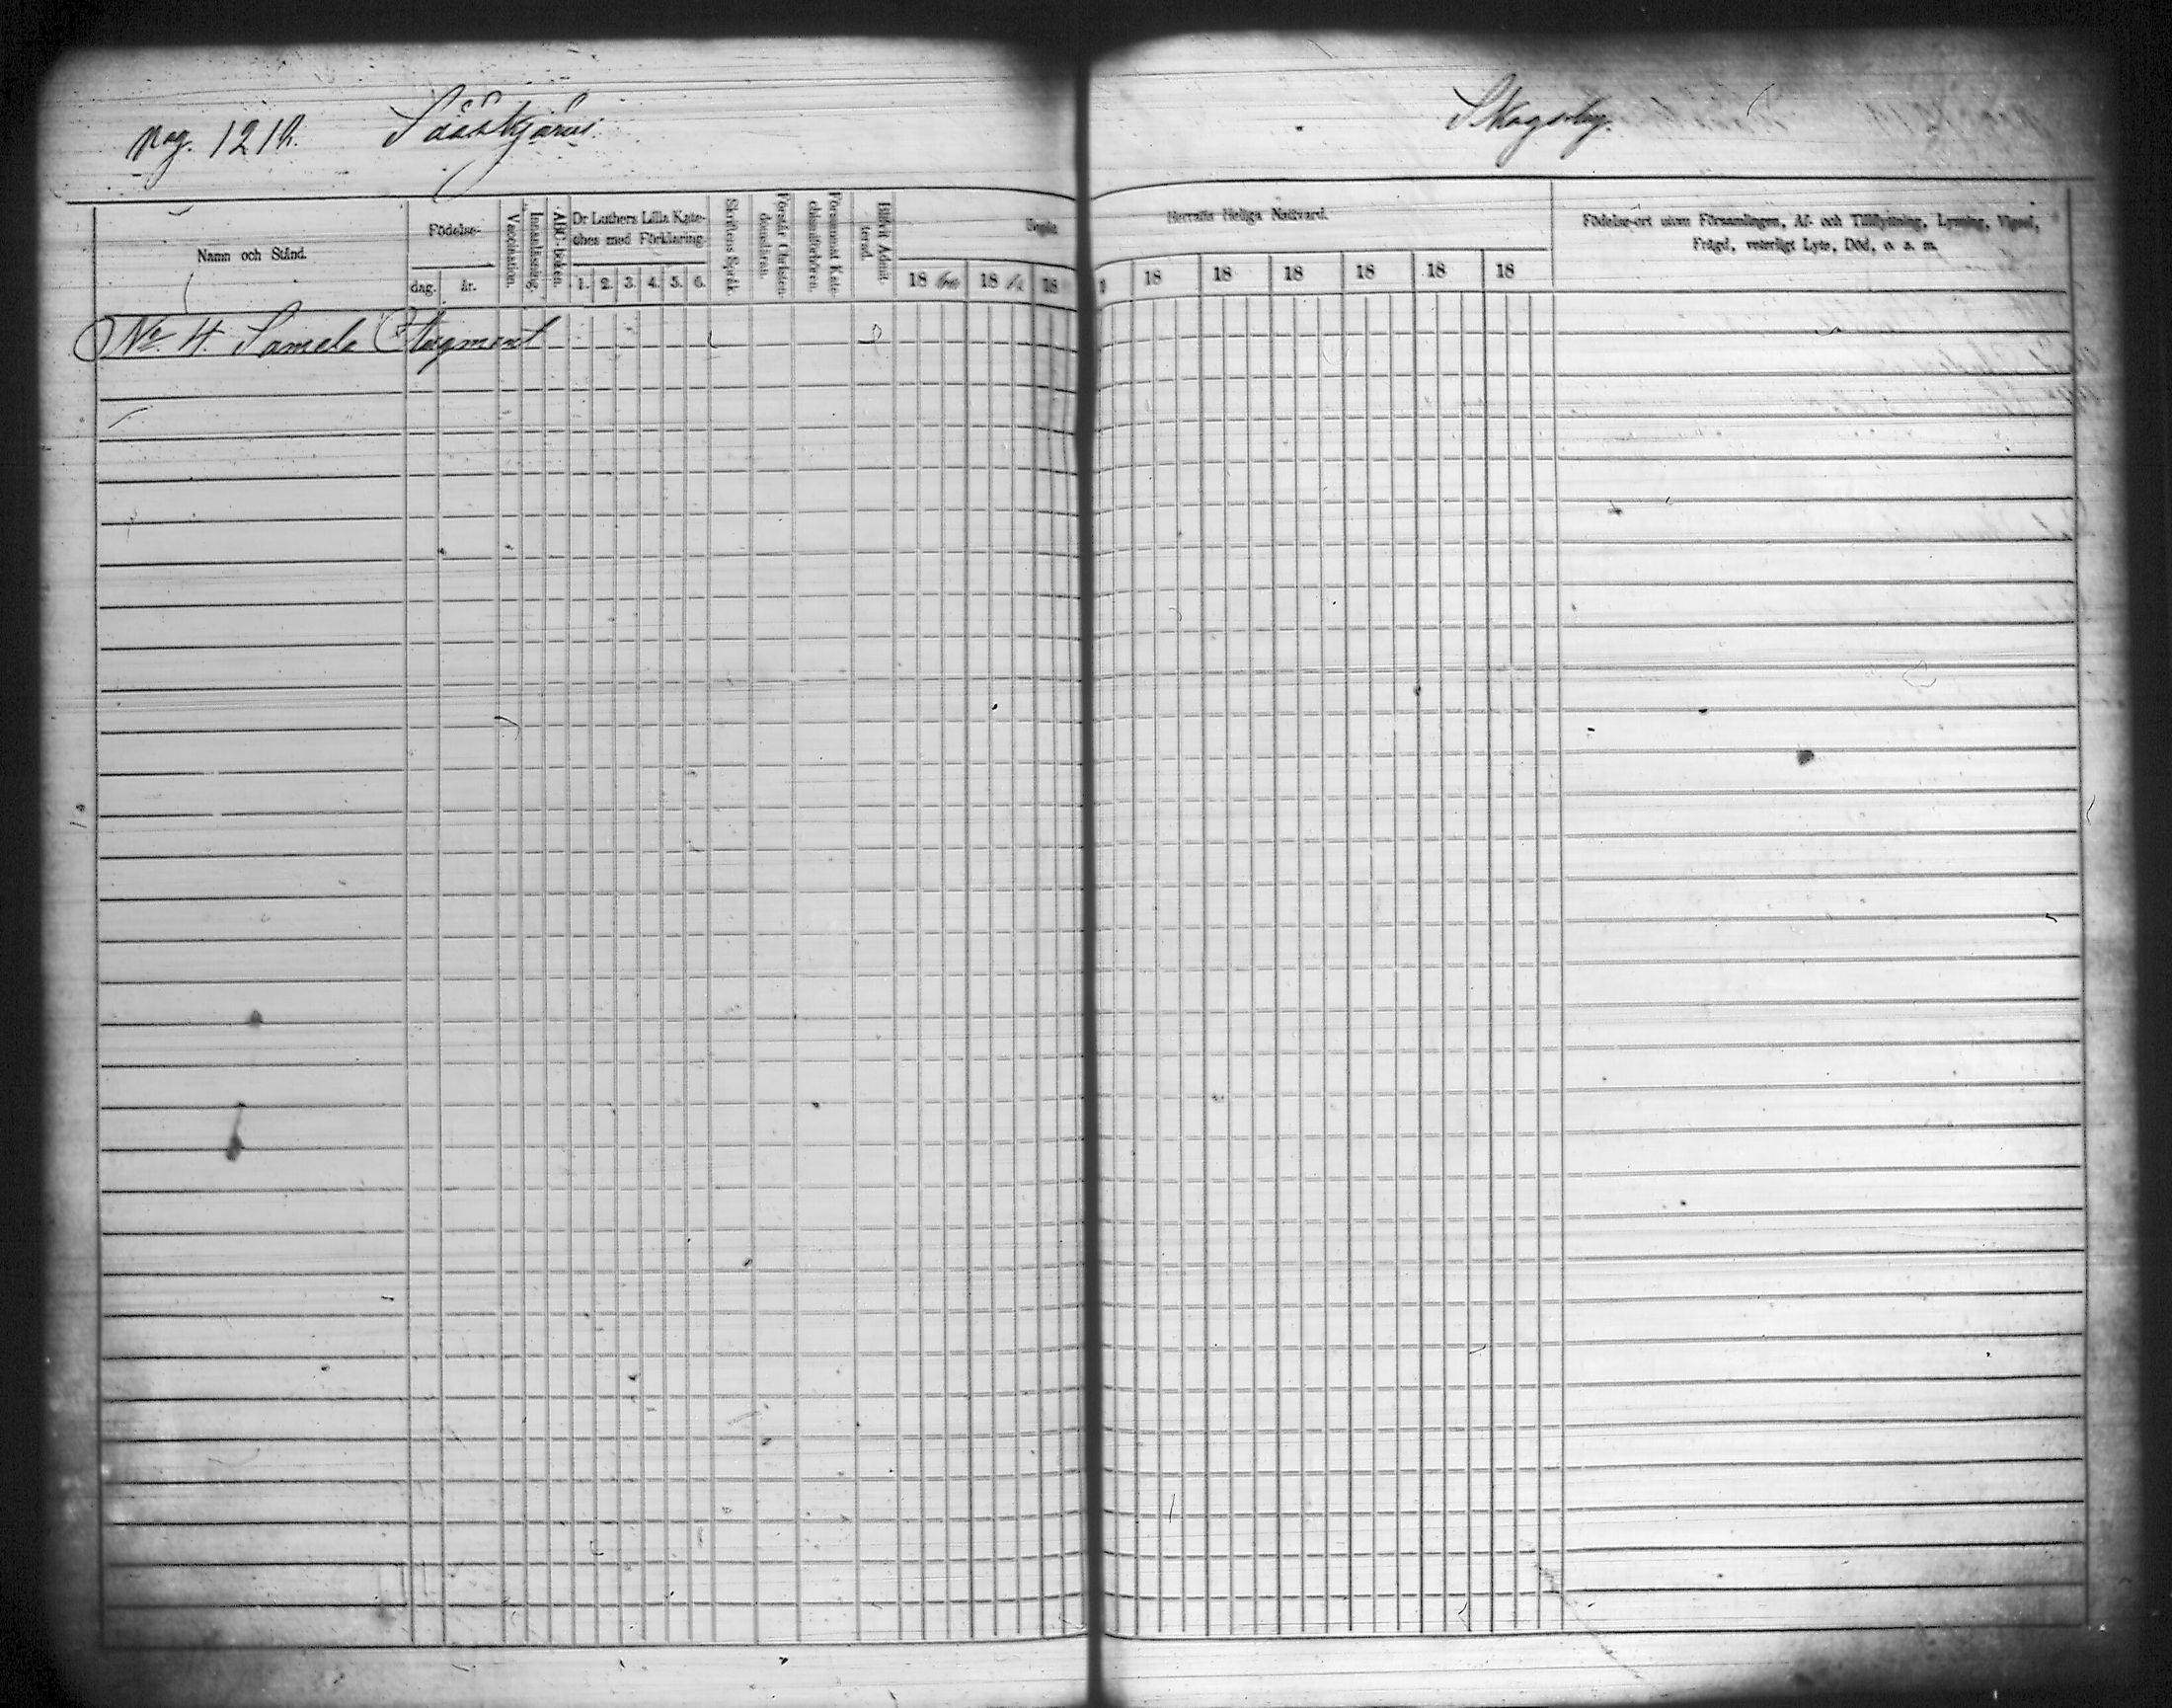 pag. 121
Sääskjärvi.
Skogsby.
Namn och Stånd.
Födelse-
dag.
år.
Vaccination.
Innanläsning.
ABC-boken.
Dr Luthers Lilla Kate-
ches med Förklaring.
1. 2. 3. 4. 5. 6.
Skriftens Språk.
Förstår Christen-
domsläran.
Försummat Kate-
chismiförhören.
Blifvit Admit-
terad.
Begås
Herrans Heliga Nattvard.
18 18 18
18 18 18 18 18 18
Födelse-ort utom Församlingen, Af- och Tillflyttning, Lysning, Vigsel,
Frägd, veterligt Lyte, Död, o. s. m.
No 4. Samela Augment